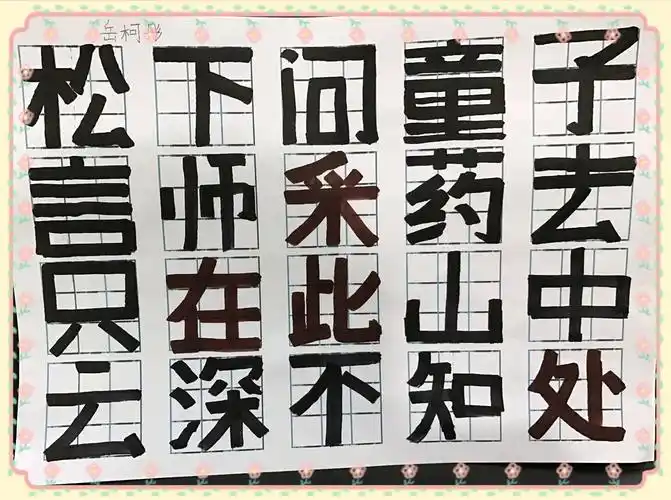 岳柯彤
松下问童子
言师采药去
只在此山中
云深不知处